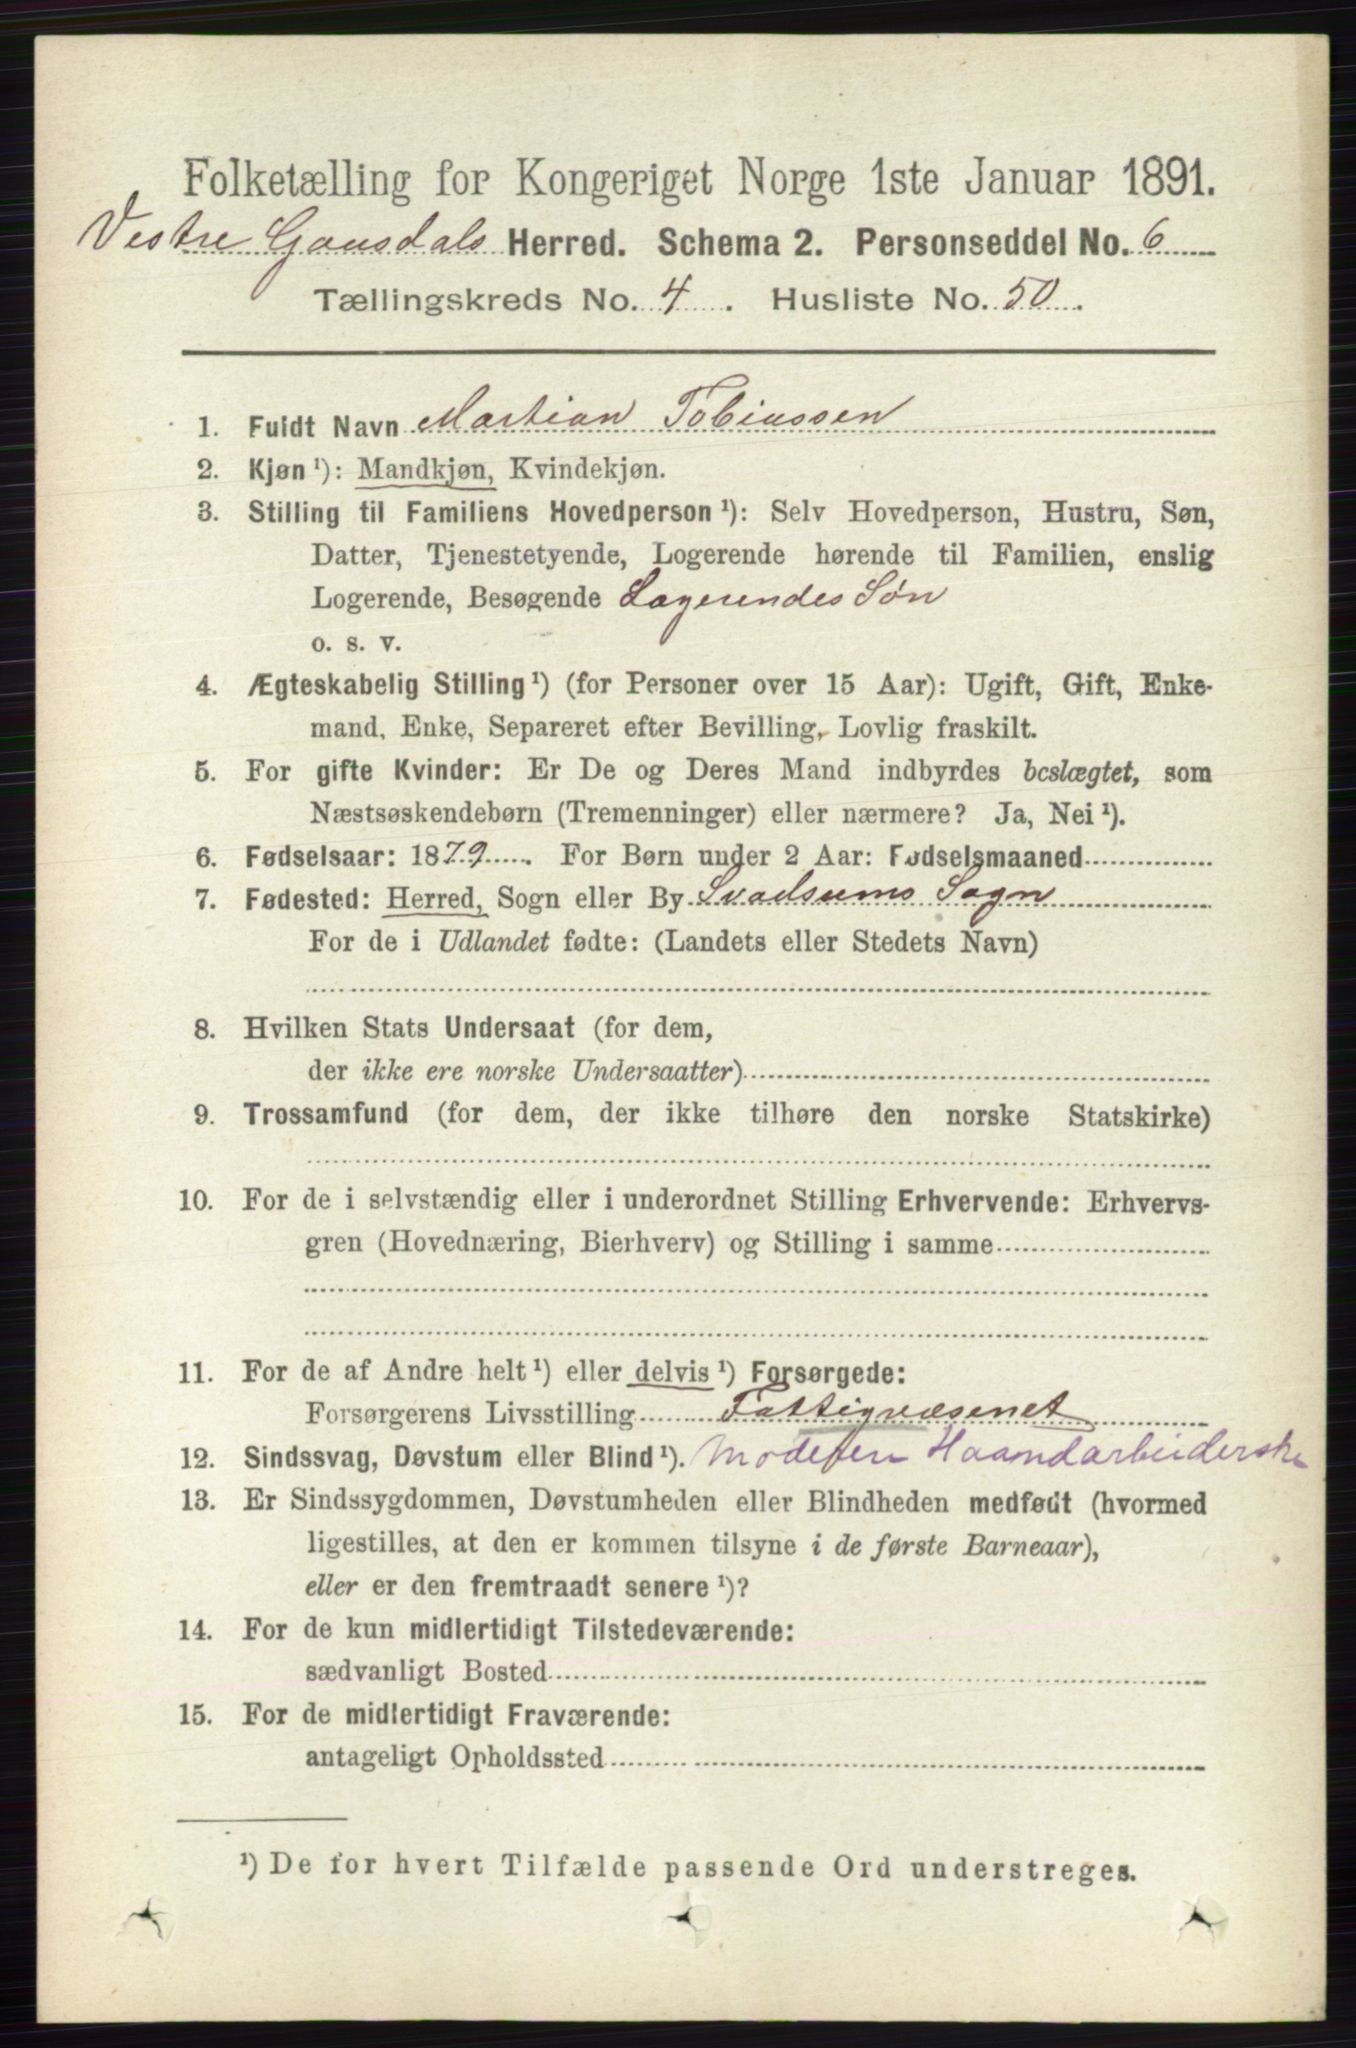 Folketælling for Kongeriget Norge 1ste Januar 1891.
Vestre Gausdals Herred. Schema 2. Personseddel No. 6
Tællingskreds No. 4. Husliste No. 50.
1. Fuldt Navn Martian Tobiassen
2. Kjøn ¹): Mandkjøn, Kvindekjøn.
3. Stilling til Familiens Hovedperson ¹): Selv Hovedperson, Hustru, Søn,
Datter, Tjenestetyende, Logerende hørende til Familien, enslig
Logerende, Besøgende Logerendes Søn
o. s. v.
4. Ægteskabelig Stilling ¹) (for Personer over 15 Aar): Ugift, Gift, Enke-
mand, Enke, Separeret efter Bevilling, Lovlig fraskilt.
5. For gifte Kvinder: Er De og Deres Mand indbyrdes beslægtet, som
Næstsøskendebørn (Tremenninger) eller nærmere? Ja, Nei ¹).
6. Fødselsaar: 1879. For Børn under 2 Aar: Fødselsmaaned
7. Fødested: Herred, Sogn eller By Svadsums Sogn
For de i Udlandet fødte: (Landets eller Stedets Navn)
8. Hvilken Stats Undersaat (for dem,
der ikke ere norske Undersaatter)
9. Trossamfund (for dem, der ikke tilhøre den norske Statskirke)
10. For de i selvstændig eller i underordnet Stilling Erhvervende: Erhvervs-
gren (Hovednæring, Bierhverv) og Stilling i samme
11. For de af Andre helt ¹) eller delvis ¹) Forsørgede:
Forsørgerens Livsstilling Fattigvæsenet
12. Sindssvag, Døvstum eller Blind ¹). Moderen Haandarbeiderske
13. Er Sindssygdommen, Døvstumheden eller Blindheden medfødt (hvormed
ligestilles, at den er kommen tilsyne i de første Barneaar),
eller er den fremtraadt senere ¹)?
14. For de kun midlertidigt Tilstedeværende:
sædvanligt Bosted
15. For de midlertidigt Fraværende:
antageligt Opholdssted
¹) De for hvert Tilfælde passende Ord understreges.